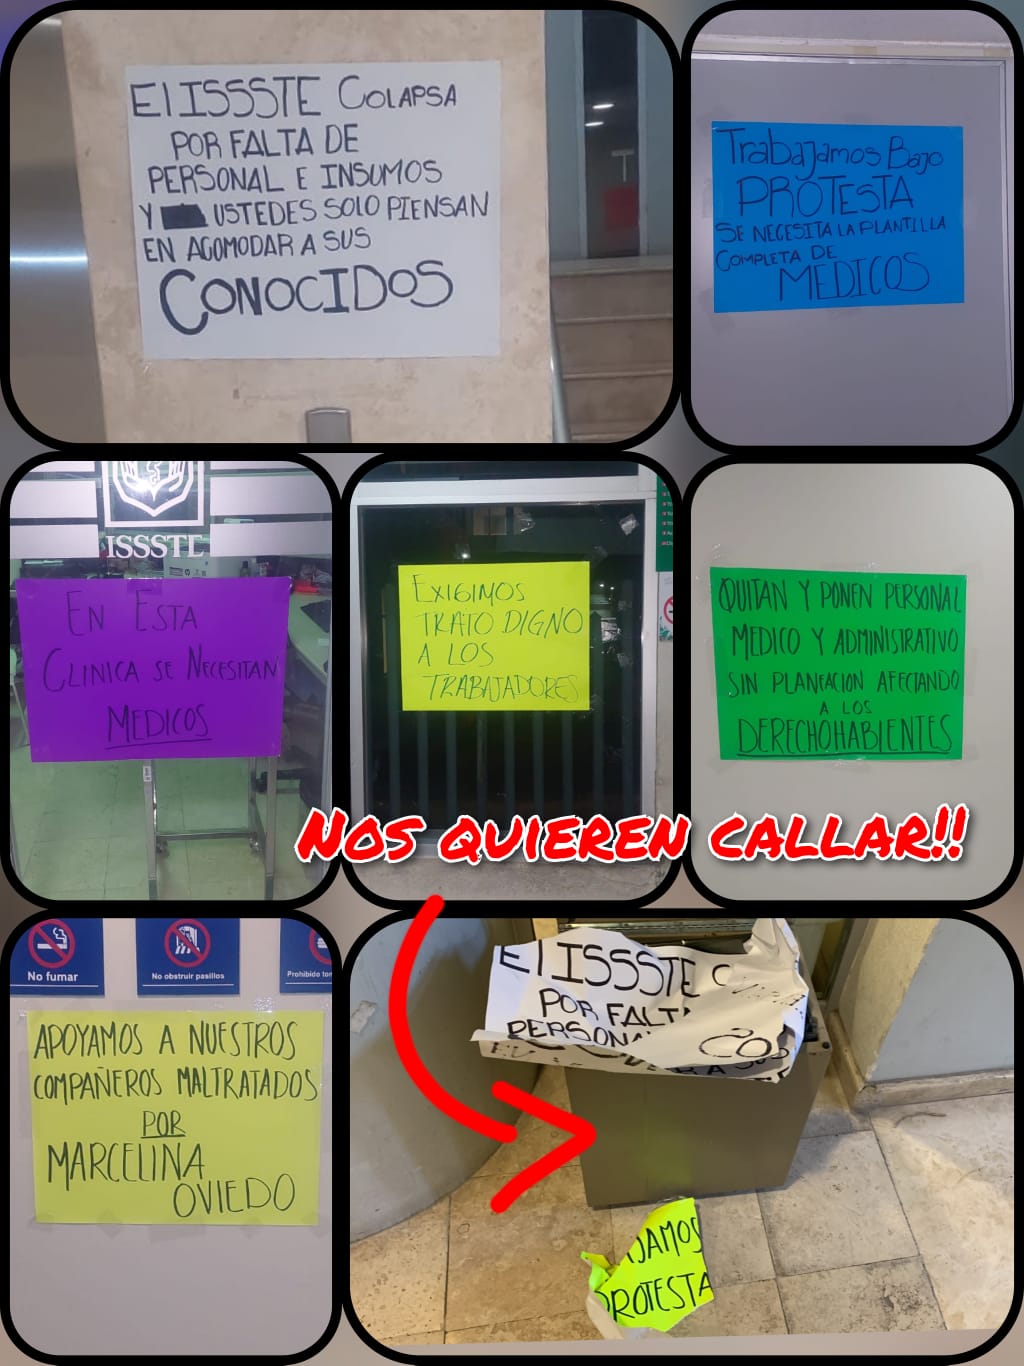 El ISSSTE COLAPSA
POR FALTA DE
PERSONAL E INSUMOS
Y USTEDES SOLO PIENSAN
EN ACOMODAR A SUS
CONOCIDOS
Trabajamos Bajo
PROTESTA
SE NECESITA LA PLANTILLA
COMPLETA DE
MEDICOS
ISSSTE
EN ESTA
CLINICA SE NECESITAN
MEDICOS
EXIGIMOS
TRATO DIGNO
A LOS
TRABAJADORES
QUITAN Y PONEN PERSONAL
MEDICO Y ADMINISTRATIVO
SIN PLANEACION AFECTANDO
A LOS
DERECHOHABIENTES
NOS QUIEREN CALLAR!!
No fumar
No obstruir pasillos
Prohibido
APOYAMOS A NUESTROS
COMPAÑEROS MALTRATADOS
POR
MARCELINA
OVIEDO
El ISSSTE C
POR FALTA
PERSONA
CO
JAMOS
PROTESTA